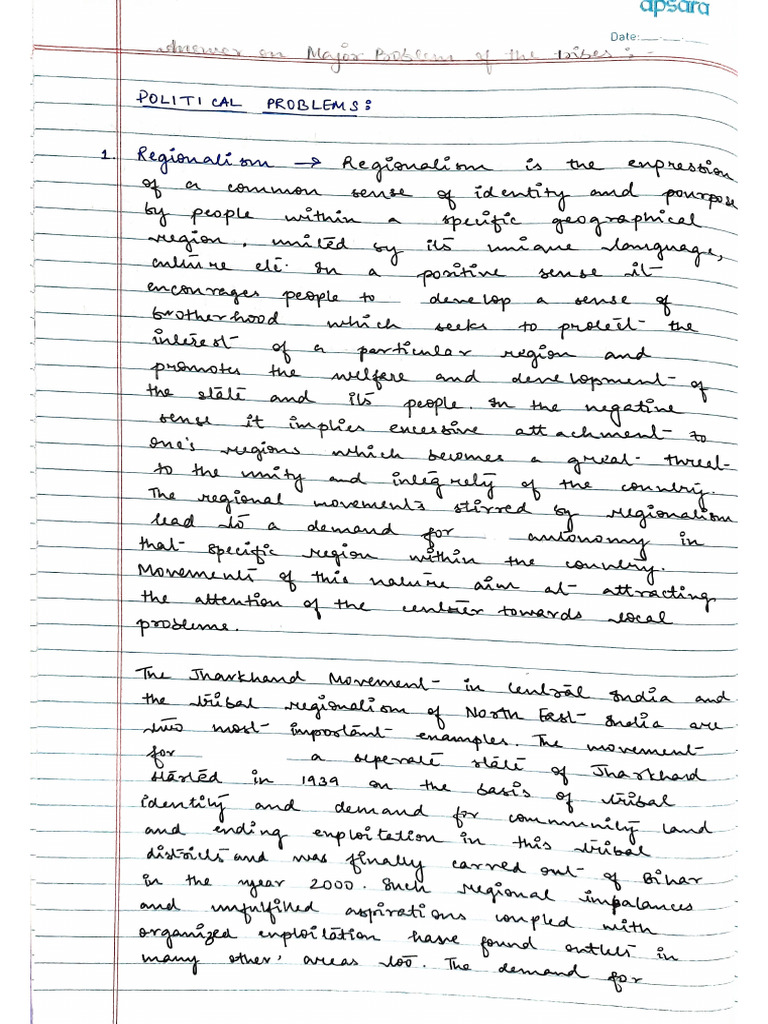 apsara
Date:
on Major Problem of the tribes :-
POLITICAL PROBLEMS:
1. Regionalism → Regionalism is the enpression
of a common sense of identity and pourpose
by people within a specific geographical
region, united by its unique language,
culture etc. In a positive sense it
encourages people to develop a sense of
brotherhood which seeks to protect the
interest of a particular region and
promotes the welfare and development of
the state and its people. In the negative
sense it implies encessive attachment to
one's regions which becomes a great threet
to the unity and integrety of the country.
The regional movements stirred by regionalism
lead to a demand for autonomy in
that specific region within the country.
Movements of this nature aim at attracting
the attention of the center towards local
probleme.
The Jharkhand Movement in Central India and
the tribal regionalism of North East India are
two most important enamples. The movement
for a seperate state of Jharkhand
started in 1939 on the basis of tribal
identity and demand for community land
and ending enploitation in this tribal
districts and was finally carved out of Bihar
in the year 2000. Such regional impalances
and unfulfilled aspirations coupled with
organized enploitation have found outlets in
many other areas too. The demand for